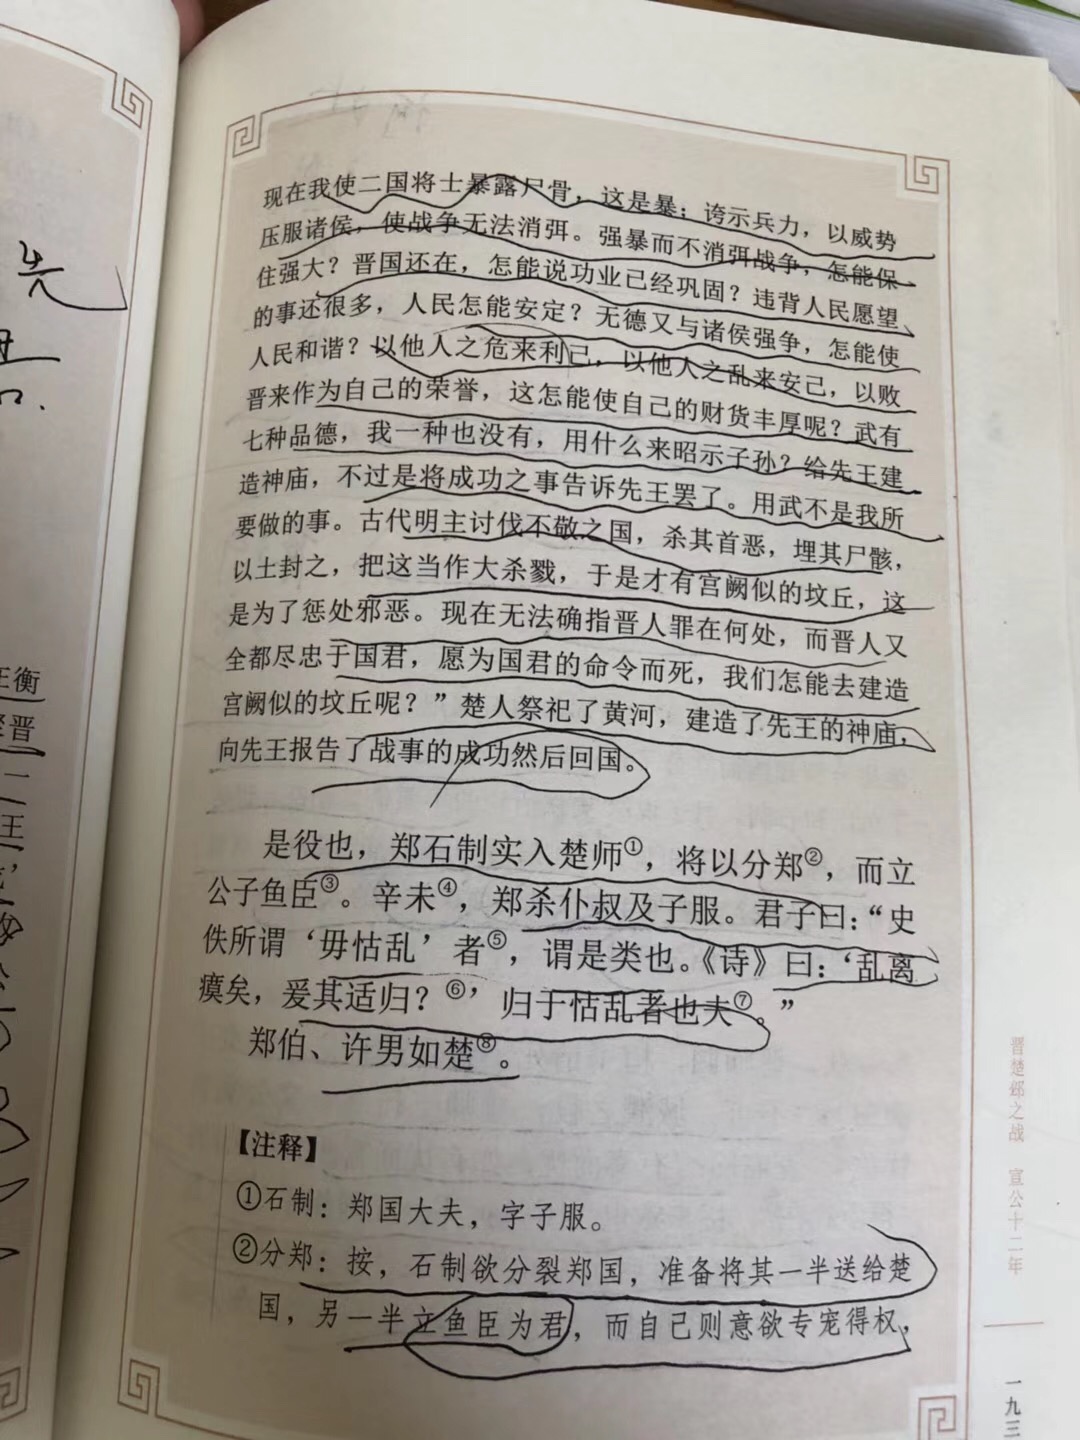 先
现在我使二国将士暴露尸骨，这是暴；诪示兵力，以威势
压服诸侯，使战争无法消弭。强暴而不消弭战争，怎能保
住强大？晋国还在，怎能说功业已经巩固？违背人民愿望
的事还很多，人民怎能安定？无德又与诸侯强争，怎能使
人民和谐？以他人之危来利己，以他人之乱来安己，以败
晋来作为自己的荣誉，这怎能使自己的财货丰厚呢？武有
七种品德，我一种也没有，用什么来昭示子孙？给先王建
造神庙，不过是将成功之事告诉先王罢了。用武不是我所
要做的事。古代明主讨伐不敬之国，杀其首恶，埋其尸骸，
以土封之，把这当作大杀戮，于是才有宫阙似的坟丘，这
是为了惩处邪恶。现在无法确指晋人罪在何处，而晋人又
全都尽忠于国君，愿为国君的命令而死，我们怎能去建造
宫阙似的坟丘呢？”楚人祭祀了黄河，建造了先王的神庙，
向先王报告了战事的成功然后回国。
是役也，郑石制实入楚师①，将以分郑②，而立
公子鱼臣③。辛未④，郑杀仆叔及子服。君子曰：“史
佚所谓‘毋怙乱’者⑤，谓是类也。《诗》曰：‘乱离
瘼矣，爰其适归？⑥’归于怙乱者也夫⑦。”
郑伯、许男如楚⑧。
【注释】
①石制：郑国大夫，字子服。
②分郑：按，石制欲分裂郑国，准备将其一半送给楚
国，另一半立鱼臣为君，而自己则意欲专宠得权，
晋楚邲之战 宣公十二年
一九三